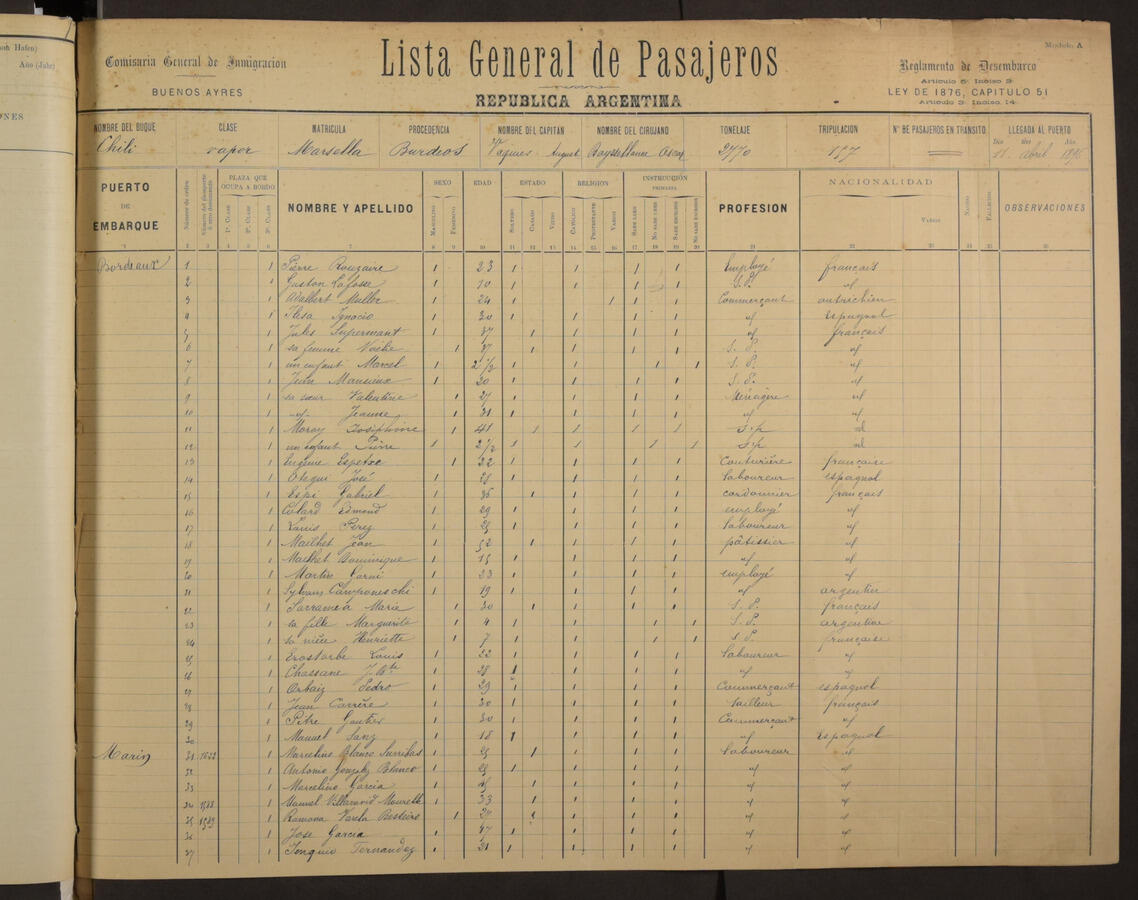 oh Hafen)
Año (Jahr)
NES
Comisaria General de Inmigración
BUENOS AYRES
Lista General de Pasajeros
REPUBLICA ARGENTINA
Modelo A
Reglamento de Desembarco
Articulo 5º Inciso 2º
LEY DE 1876, CAPITULO 51
Articulo 3º Inciso 14
NOMBRE DEL BUQUE CLASE MATRICULA PROCEDENCIA NOMBRE DEL CAPITAN NOMBRE DEL CIRUJANO TONELAJE TRIPULACION Nº DE PASAJEROS EN TRANSITO LLEGADA AL PUERTO
Dia Mes Año
Chili vapor Marsella Burdeos August Oscar 2770 157 11 abril 1895
PUERTO DE EMBARQUE
Número de orden
PLAZA QUE OCUPA A BORDO
1ª CLASE 2ª CLASE 3ª CLASE
NOMBRE Y APELLIDO
SEXO
MASCULINO FEMENINO
EDAD
ESTADO
SOLTERO CASADO VIUDO
RELIGION
CATÓLICO PROTESTANTE VARIOS
INSTRUCCIÓN PRIMARIA
SABE LEER NO SABE LEER SABE ESCRIBIR NO SABE ESCRIBIR
PROFESION
NACIONALIDAD
VARIOS
NACIDO FALLECIDO
OBSERVACIONES
Bordeaux 1 1 Pierre Rouzaire 1 23 1 1 1 1 Employé français
2 1 Gaston Lafosse 1 10 1 1 1 S.P. "
3 1 Adalbert Muller 1 24 1 1 1 1 Commerçant autrichien
4 1 Ilesa Ignacio 1 30 1 1 1 1 " espagnol
5 1 Jules Supermant 1 37 1 1 1 1 " français
6 1 sa femme 1 37 1 1 1 1 S. P. "
7 1 un enfant Marcel 1 2 1/2 1 1 1 1 S. P. "
8 1 Jean Mansieux 1 20 1 1 1 1 S. P. "
9 1 sa sœur Valentine 1 27 1 1 1 1 Ménagère "
10 1 " Jeanne 1 31 1 1 1 1 " "
11 1 Moray Josephine 1 41 1 1 1 1 S.p id
12 1 un enfant Pierre 1 2 1/2 1 1 1 1 S.p id
13 1 Eugénie Espetxe 1 32 1 1 1 1 Couturière française
14 1 Otegui José 1 28 1 1 1 1 laboureur espagnol
15 1 Espi Gabriel 1 36 1 1 1 1 cordonnier français
16 1 Colard Edmond 1 29 1 1 1 1 employé "
17 1 Louis Perez 1 25 1 1 1 1 laboureur "
18 1 Mailhet Jean 1 52 1 1 1 1 pâtissier "
19 1 Mailhet Dominique 1 15 1 1 1 1 " "
20 1 Martin Garni 1 23 1 1 1 1 employé "
21 1 Sylvans Camponeschi 1 19 1 1 1 1 " argentin
22 1 Sarraméa Marie 1 30 1 1 1 1 S. P. français
23 1 sa fille Marguerite 1 4 1 1 1 1 S. P. argentine
24 1 sa nièce Henriette 1 7 1 1 1 1 S. P. française
25 1 Erostarbe Louis 1 22 1 1 1 1 laboureur "
26 1 Chassane J. Bte 1 28 1 1 1 1 " "
27 1 Orbaiz Pedro 1 29 1 1 1 1 Commerçant espagnol
28 1 Jean Carrère 1 30 1 1 1 1 tailleur français
29 1 Pètre Gautier 1 30 1 1 1 1 Commerçant "
30 1 Manuel Sanz 1 18 1 1 1 1 " espagnol
Marin 31 1 Marcelino Blanco 1 25 1 1 1 1 laboureur "
32 1 Antonio Gonzalez Blanco 1 25 1 1 1 1 " "
33 1 Marcelino Garcia 1 1 1 1 1 " "
34 1 Manuel 1 33 1 1 1 1 " "
35 1 Ramona Varela 1 1 1 1 1 " "
36 1 Jose Garcia 1 47 1 1 1 1 " "
37 1 Fernandez 1 31 1 1 1 1 " "